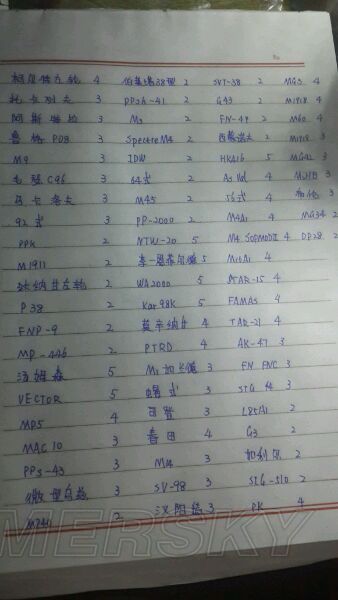 柯尔特左轮 4 伯莱塔38型 2 SVT-38 2 MG5 4
托卡列夫 3 PPSh-41 2 G43 2 M1918 4
阿斯特拉 3 M3 2 FN-49 2 M60 4
鲁格 P08 3 Spectre M4 2 西蒙诺夫 2 M1919 3
M9 3 IDW 2 HK416 5 MG42 3
毛瑟 C96 3 64式 2 As Val 4 3
马卡洛夫 3 M45 2 56式 4 3
92式 3 PP-2000 2 M4A1 4 MG34 2
PPK 2 NTW-20 5 M4 SOPMODII 4 DP28 2
M1911 2 李-恩菲尔德 5 M16A1 4
纳甘左轮 2 WA2000 5 STAR-15 4
P38 2 Kar98K 5 FAMAS 4
FNP-9 2 莫辛纳甘 4 TAR-21 4
MP-446 2 PTRD 4 AK-47 3
汤姆森 5 M1加兰德 3 FN FNC 3
VECTOR 5 3 STG 44 3
MP5 4 司登 3 L85A1 2
MAC10 3 春田 4 G3 2
PPS-43 3 M14 3 加利尔 2
微型乌兹 3 SV-98 3 SIG-510 2
2 汉阳造 3 PK 4
MERSKY